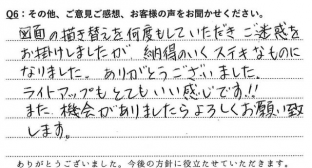 Q6：その他、ご意見ご感想、お客様の声をお聞かせください。
図面の描き替えを何度もしていただき ご迷惑を
お掛けしましたが 納得のいく ステキなものに
なりました。ありがとうございました。
ライトアップも とても いい感じです!!
また 機会がありましたら よろしくお願い致
します。
ありがとうございました。今後の方針に役立たせていただきます。